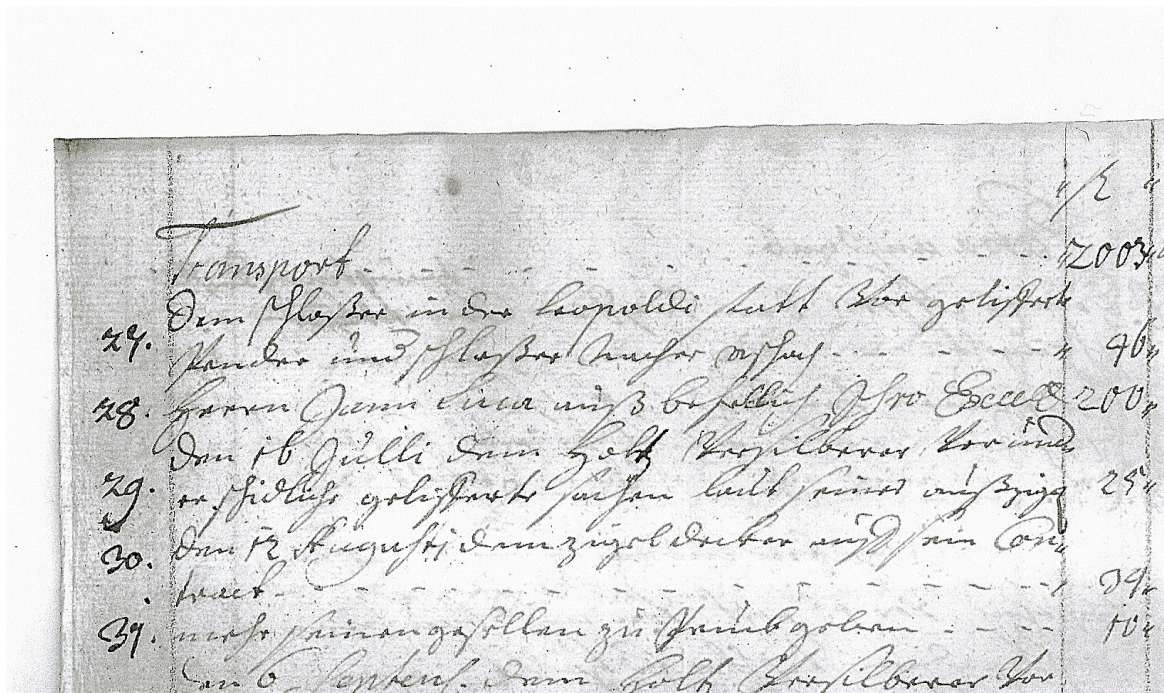 fl
Transport - - - - - - - - 2003
Dem schlosser in der Leopoldi statt Vor geliferte
27. bender und schlosser nacher - - - - 46
28. Herrn Jann Luca auß befelch Ihro Excell 200
den 16 Julli dem Holtz Versilberer, Vor und
29. er schidliche geliferte sachen laut seines außzigl 25
30. den 12 Augusti dem zigeldecker auff sein Con
tract - - - - - - - - 34
31. mehr seinen gesellen zu geben - - - - 10
den 6 Septemb. dem Holtz Versilberer Vor